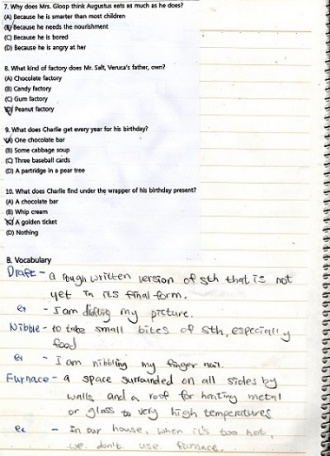 7. Why does Mrs. Gloop think Augustus eats as much as he does?
(A) Because he is smarter than most children
(B) Because he needs the nourishment
(C) Because he is bored
(D) Because he is angry at her
8. What kind of factory does Mr. Salt, Veruca's father, own?
(A) Chocolate factory
(B) Candy factory
(C) Gum factory
(D) Peanut factory
9. What does Charlie get every year for his birthday?
(A) One chocolate bar
(B) Some cabbage soup
(C) Three baseball cards
(D) A partridge in a pear tree
10. What does Charlie find under the wrapper of his birthday present?
(A) A chocolate bar
(B) Whip cream
(C) A golden ticket
(D) Nothing
B. Vocabulary
Draft - a rough written version of sth that is not
yet in its final form.
ex - I am drafting my picture.
Nibble - to take small bites of sth, especially
food
ex - I am nibbling my finger nail.
Furnace - a space surrounded on all sides by
walls and a roof for heating metal
or glass to very high temperatures
ex - in our house, when it's too hot,
we don't use furnace.